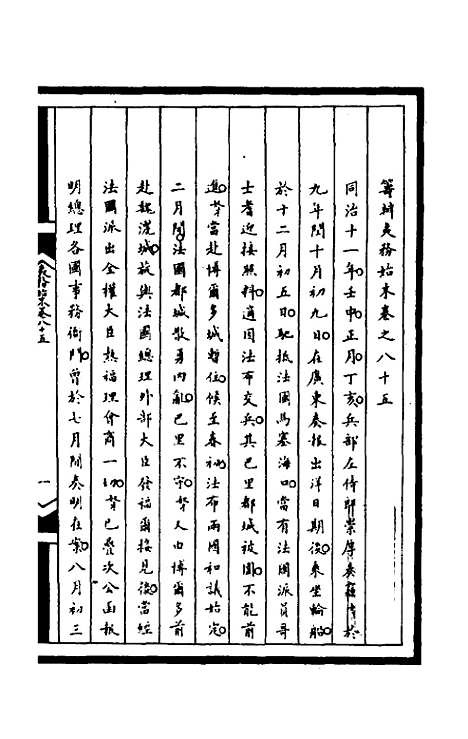 籌辦夷務始末卷之八十五
同治十一年壬申正月丁亥兵部左侍郎崇厚奏竊於
九年閏十月初九日在廣東奏報出洋日期後乘坐輪船
於十二月初五日馳抵法國馬塞海口當有法國派員哥
士耆迎接照料適因法布交兵其巴里都城被圍不能前
進當赴博爾多城暫住候至春初法布兩國和議始定
二月間法國都城散勇內亂巴里不守又由博爾多前
赴魏灑城旋與法國總理外部大臣發福爾接見後當經
法國派出全權大臣熱福理會商一切已疊次公函報
明總理各國事務衙門曾於七月間奏明在案八月初三
夷務始末卷八十五
一